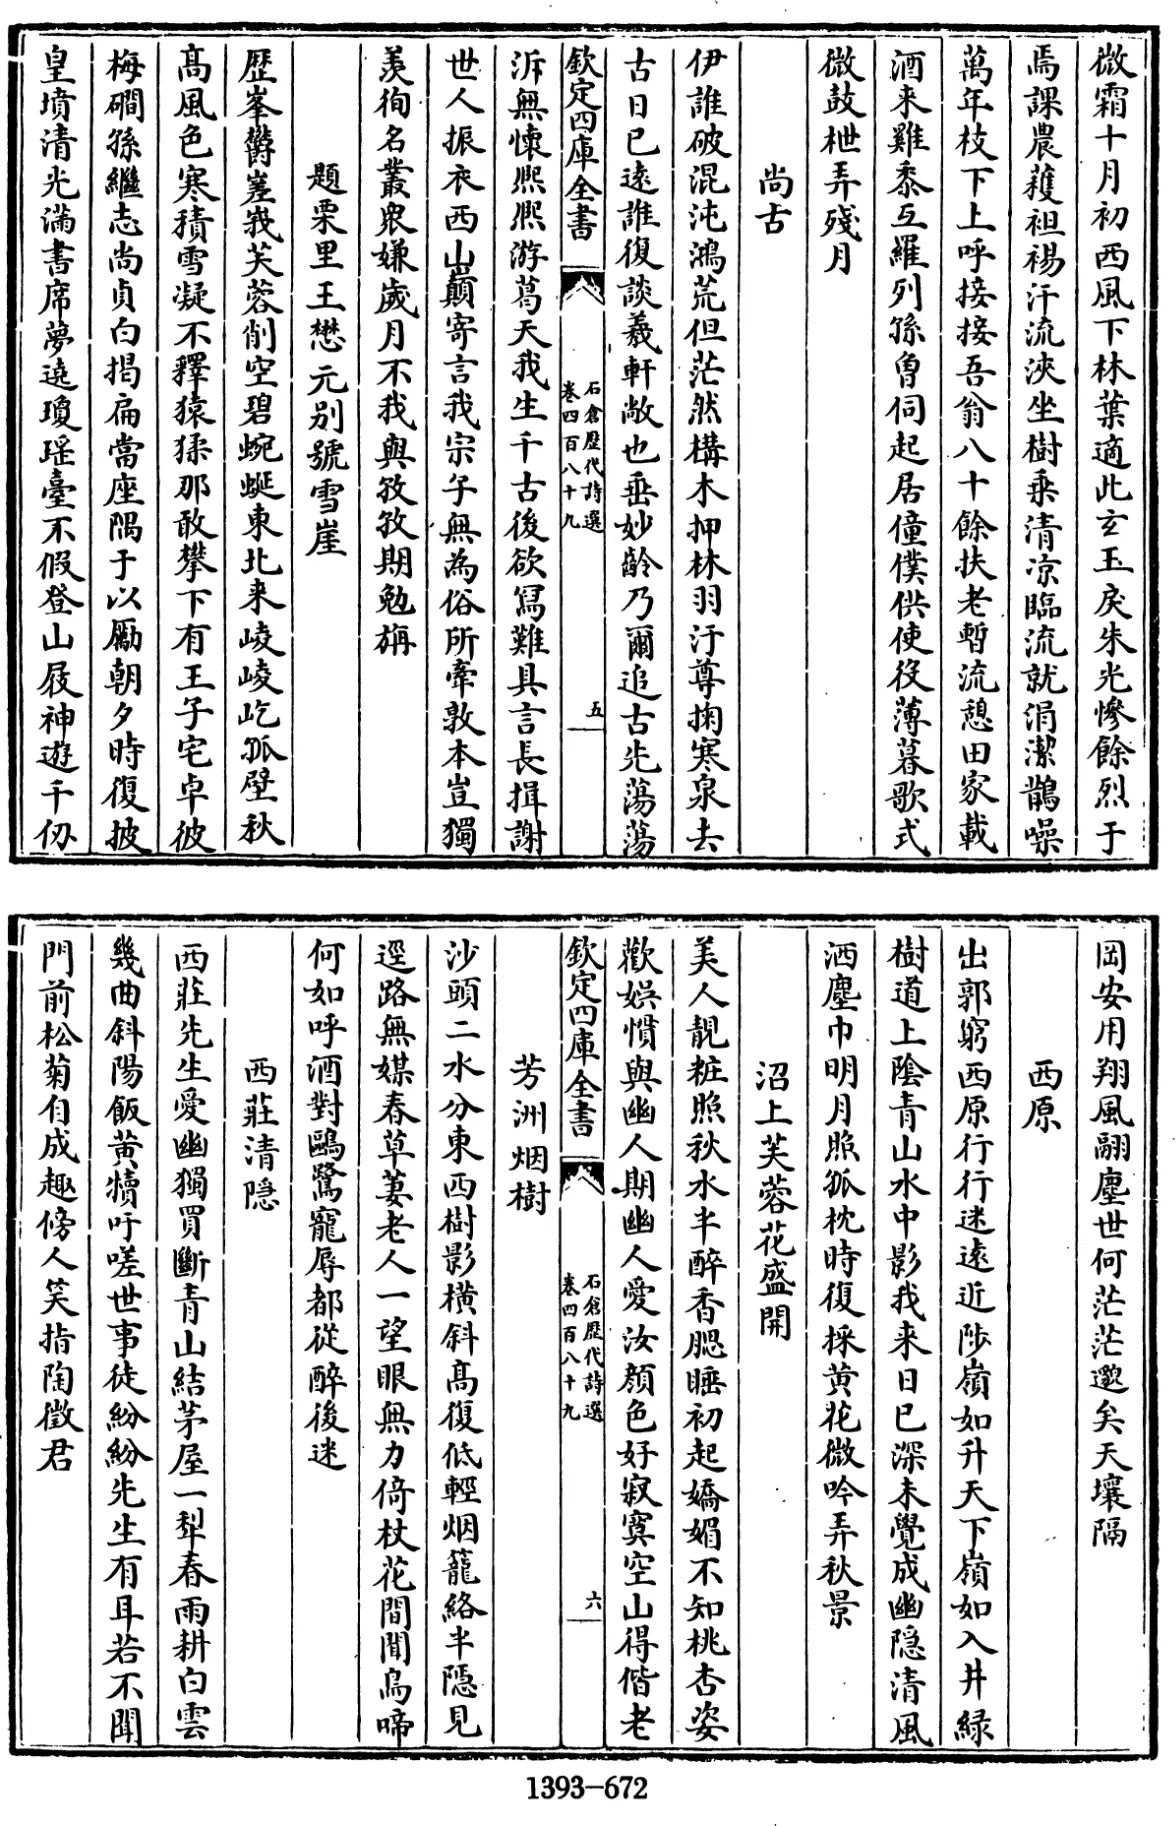 微霜十月初西風下林葉適此玄玉戾朱光慘餘烈于
焉課農穫袒裼汗流浹坐樹乗清凉臨流就涓潔鵲噪
萬年枝下上呼接接吾翁八十餘扶老暫流憩田家載
酒来雞黍互羅列孫曽伺起居僮僕供使役薄暮歌式
微鼓枻弄殘月
尚古
伊誰破混沌鴻荒但茫然構木押林羽汙尊掬寒泉去
古日已逺誰復談羲軒敞也垂妙齡乃爾追古先蕩蕩
欽定四庫全書
石倉歷代詩選
卷四百八十九
五
泝無懐熈熈游葛天我生千古後欲冩難具言長揖謝
世人振衣西山巔寄言我宗子無為俗所牽敦本豈獨
羨徇名叢衆嫌歲月不我與孜孜期勉旃
題栗里王懋元别號雪崖
歴峯欝嵳峩芙蓉削空碧蜿蜒東北来崚崚屹孤壁秋
髙風色寒積雪凝不釋猿猱那敢攀下有王子宅卓彼
梅磵孫繼志尚貞白掲扁當座隅于以勵朝夕時復披
皇墳清光滿書席夢遶瓊瑶臺不假登山屐神遊千仭
岡安用翔風翮塵世何茫茫邈矣天壤隔
西原
出郭窮西原行行迷逺近陟嶺如升天下嶺如入井緑
樹道上隂青山水中影我来日已深未覺成幽隠清風
洒塵巾明月照孤枕時復採黄花微吟弄秋景
沼上芙蓉花盛開
美人靚粧照秋水半醉香腮睡初起嬌媚不知桃杏姿
歡娯慣與幽人期幽人愛汝顔色好寂寞空山得偕老
欽定四庫全書
石倉歷代詩選
卷四百八十九
六
芳洲烟樹
沙頭二水分東西樹影横斜髙復低輕烟籠絡半隠見
逕路無媒春草萋老人一望眼無力倚杖花間聞鳥啼
何如呼酒對鷗鷺寵辱都從醉後迷
西莊清隠
西莊先生愛幽獨買斷青山結茅屋一犂春雨耕白雲
幾曲斜陽飯黄犢吁嗟世事徒紛紛先生有耳若不聞
門前松菊自成趣傍人笑指陶徵君
1393-672